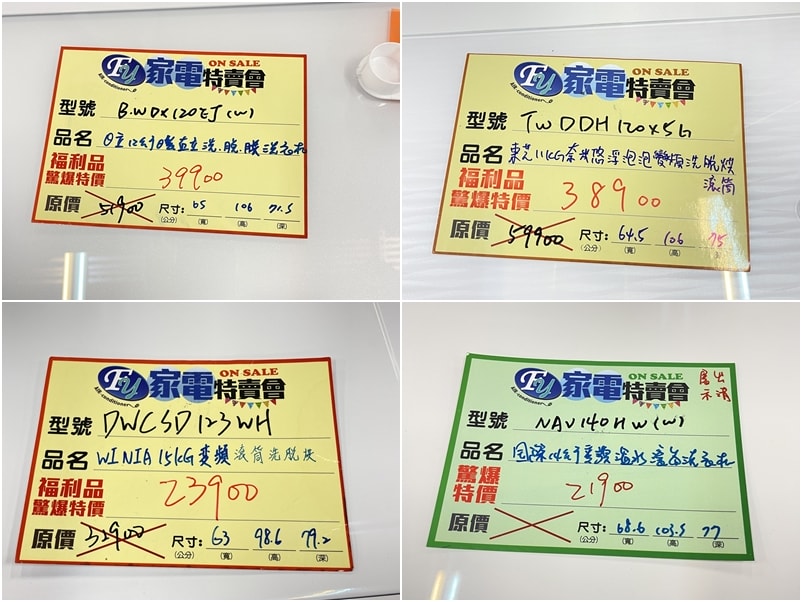 FY 家電特賣會 ON SALE
Air-conditioner
型號 BWDX120EJ(W)
品名 日立12公斤日製直立洗.脫.洗衣機
福利品
驚爆特價 39900
原價 51900 尺寸: 65 106 71.5
(公分) (寬) (高) (深)
FY 家電特賣會 ON SALE
Air-conditioner
型號 TWDDH120X5G
品名 東芝11KG奈米悠浮泡泡變頻洗脫烘
滾筒
福利品
驚爆特價 38900
原價 59900 尺寸: 64.5 106 75
(公分) (寬) (高) (深)
FY 家電特賣會 ON SALE
Air-conditioner
型號 DWCSD123WH
品名 WINIA 15KG變頻滾筒洗脫烘
福利品
驚爆特價 23900
原價 32900 尺寸: 63 98.6 79.2
(公分) (寬) (高) (深)
FY 家電特賣會 ON SALE
Air-conditioner
型號 NAV140HW(W)
品名 國際14公斤變頻溫水洗衣機
驚爆
特價 21900
原價 尺寸: 68.6 103.5 77
(公分) (寬) (高) (深)